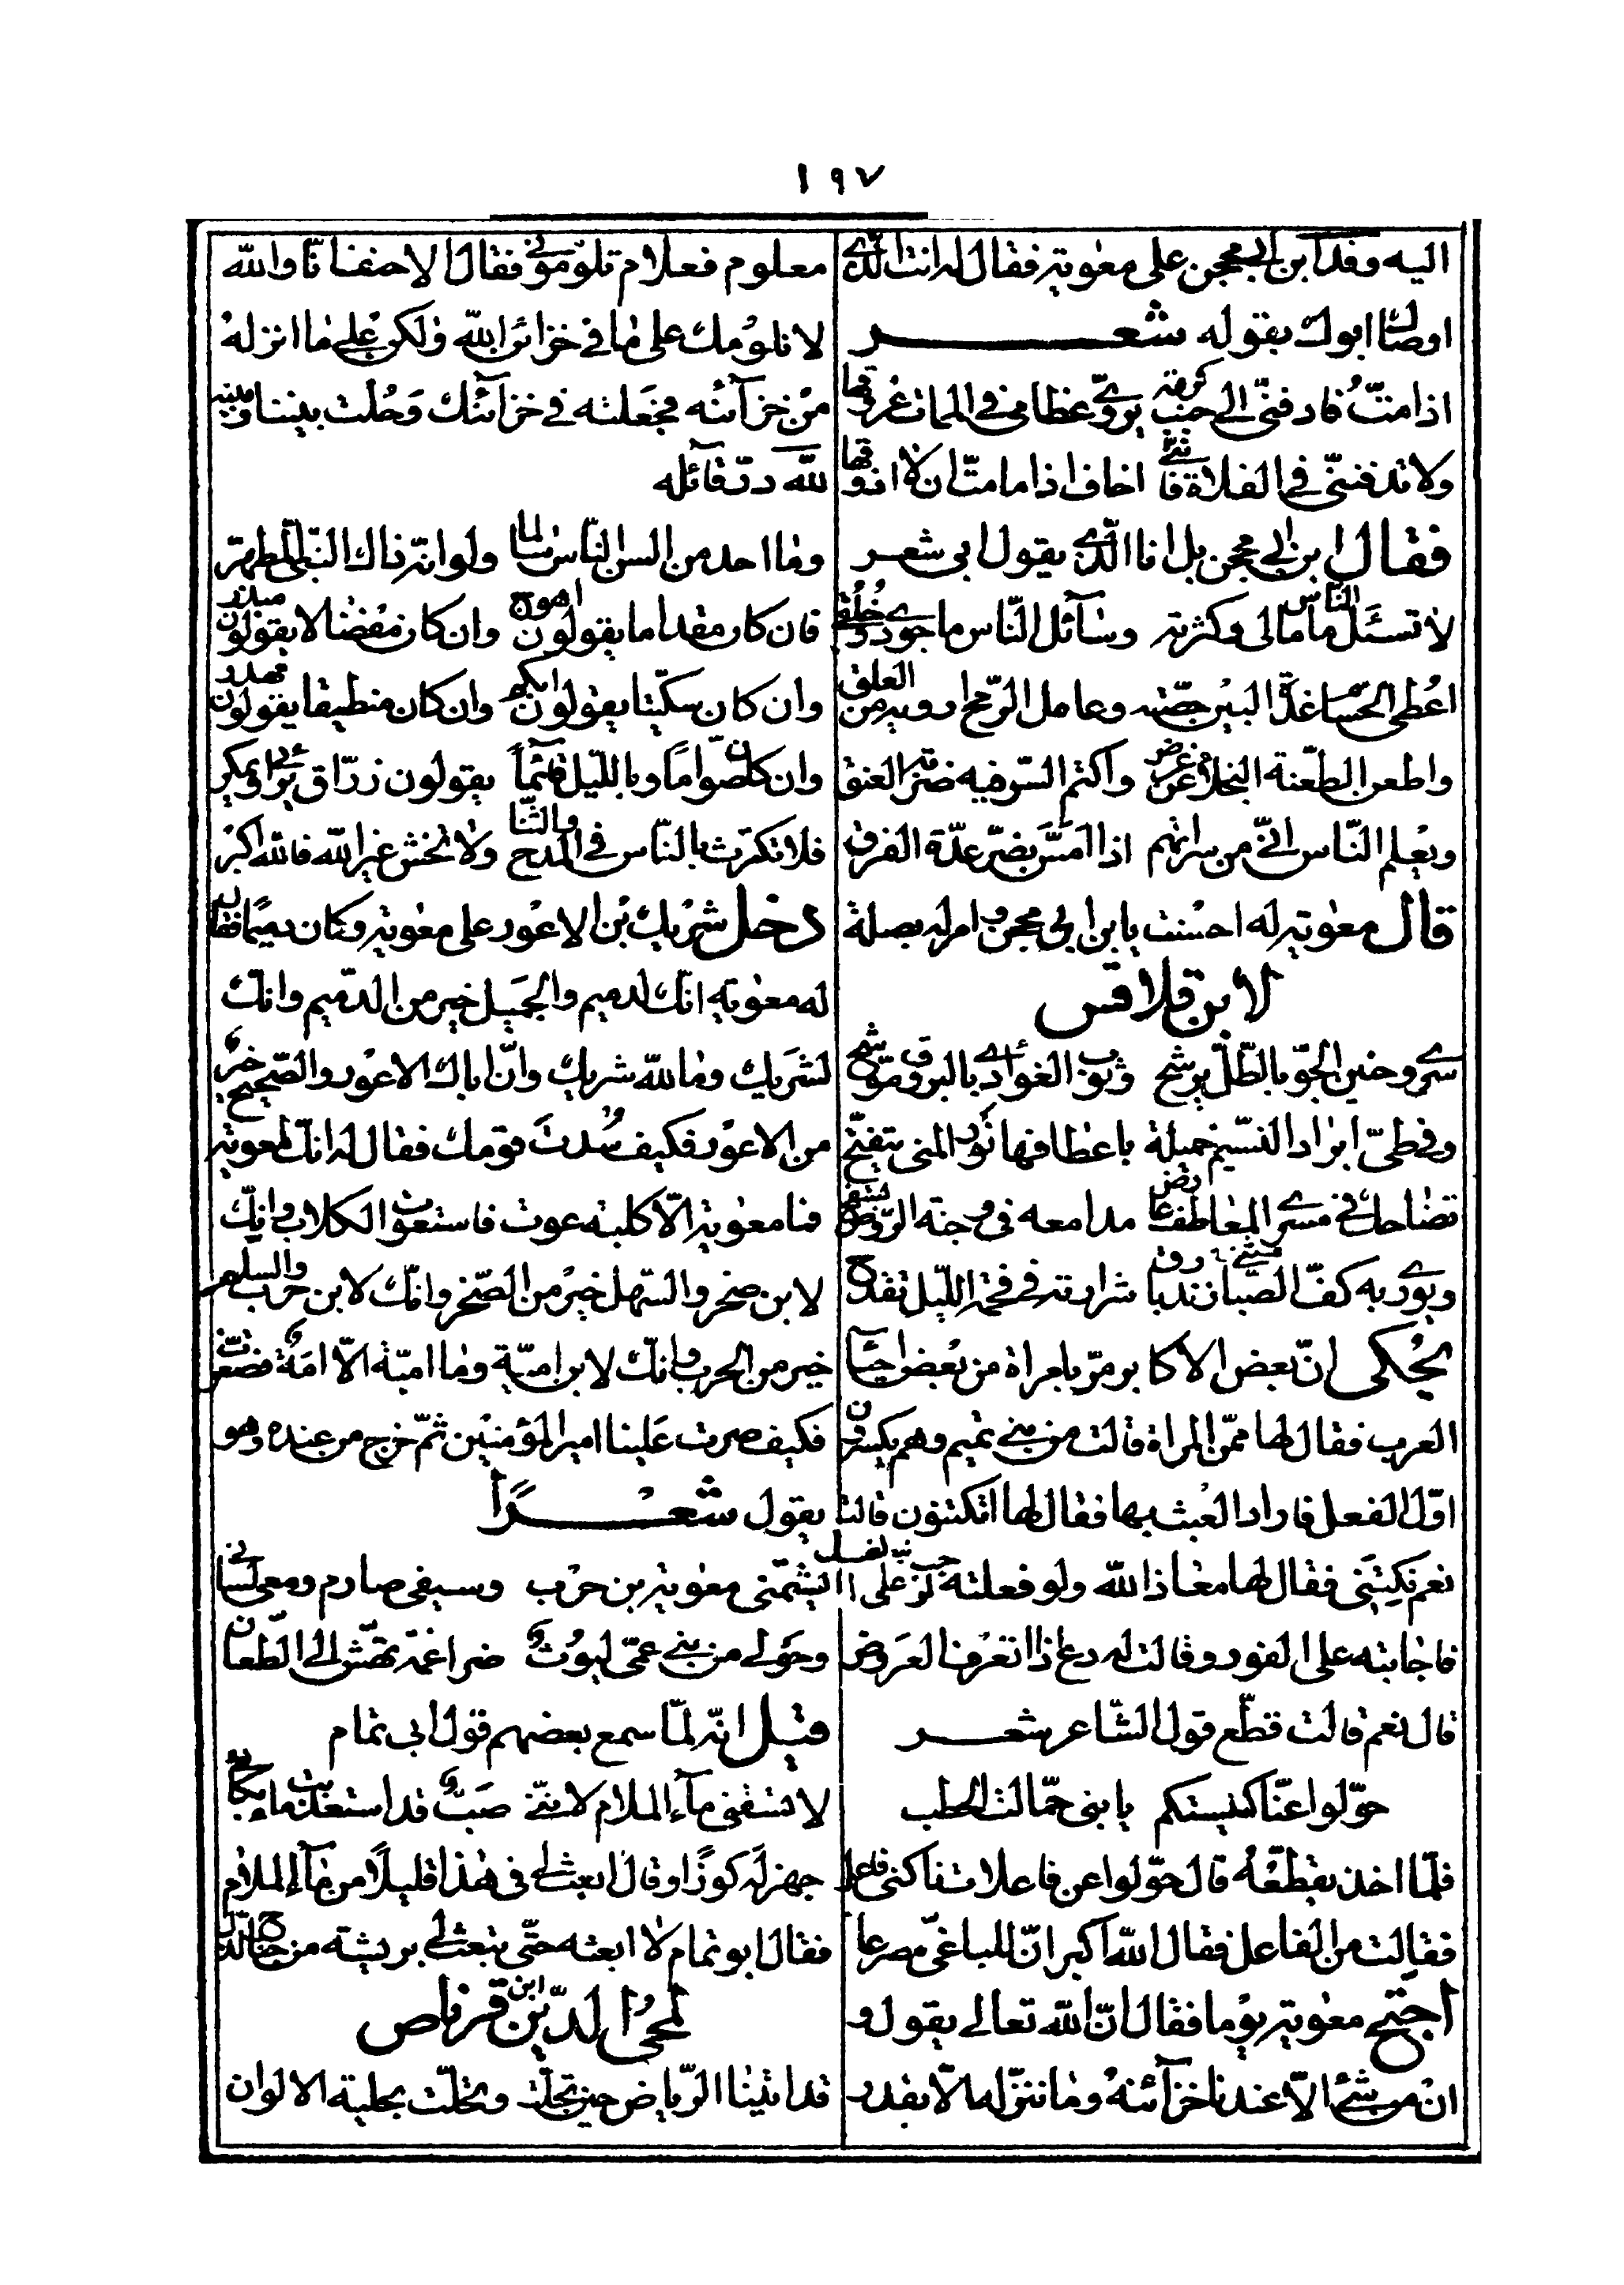 ١٩٧
اليه وفد ابن ابى محجن على معوية فقال له انت الّذى
اوصاك ابوك بقوله شعر
اذا متّ فادفنّى الى جنب كرمة يروّى عظامى فى الممات عروقها
ولا تدفننّى فى الفلاة فانّنى اخاف اذا ما متّ ان لا اذوقها
فقال ابن ابى محجن بل انا الّذى يقول ابى شعر
لا تسئل النّاس ما مالى وكثرته وسآئل النّاس ما جودى وخلقى
اعطى الحسام غداة البين حصّته وعامل الرّمح ارويه من العلق
واطعن الطّعنة النجلاء عن عرض واكتم السّر فيه ضربة العنق
ويعلم النّاس انّى من سراتهم اذا بضرّ عدّة الفرق
قال معوية له احسنت يا بن ابى محجن وامر له بصلة
لابن قلاقس
سرى وجنين الجوّ بالطّلّ يرشح وثوب الغوادى بالبروق موشّح
وفى طىّ ابراد النسيم خميلة باعطافها نور المنى يتفتّح
تضاحك فى مسرى المعاطف عارض مدامعه فى وجنة الرّوض تسفح
ويورى به كفّ الصّبا زند بارق شرارته فى فحمة اللّيل تقدح
يحكى انّ بعض الاكابر مرّ بامراة من بعض احيآء
العرب فقال لها ممّن المراة قالت من بنى تميم وهم يكسرون
اوّل الفعل فاراد العبث بها فقال لها اتكتنون قالت
نعم نكتنى فقال لها معاذ الله ولو فعلته وجب علىّ الغسل
فاجابته على الفور وقالت له دع ذا اتعرف العروض
قال نعم قالت قطّع قول الشّاعر شعر
حوّلوا عنّا كنيستكم يا بنى حمّالت الحطب
فلمّا اخذ يقطّعه قال حوّلوا عن فاعلات ناكنى فاعل
فقالت من الفاعل فقال الله اكبر انّ للباغى مصرعا
احتجّ معوية يوما فقال انّ الله تعالى يقول و
ان من شئ الّا عندنا خزآئنه وما ننزّله الّا بقدر
معلوم فعلام تلوموننى فقال الاحنف انّا والله
لا نلومك على ما فى خزائن الله ولكن على ما انزله
من خزآئنه فجعلته فى خزآئنك وحلت بيننا وبينه
لله درّ قآئله
وما احد من السن النّاس سالما ولو انّه ذاك النّبى المطهّر
فان كان مقداما يقولون اهوج وان كان مفضالا يقولون مبذر
وان كان سكّيتا يقولون ابكم وان كان منطيقا يقولون مهذر
وان كان صوّاماً وباللّيل قآئماً يقولون زرّاق يرائى ويمكر
فلا تكترث بالنّاس فى المدح والثّنا ولا تخش غير الله فالله اكبر
دخل شريك بن الاعور على معوية وكان دميمًا فقال
له معوية انّك لدميم والجميل خير من الدّميم وانّك
لشريك وما لله شريك وانّ اباك الاعور والصّحيح خير
من الاعور فكيف سُدتَ قومك فقال له انّك لمعوية
وما معوية الّا كلبة عوت فاستعوت الكلاب وانّك
لابن صخر والسّهل خير من الصّخر وانّك لابن حرب والسلم
خير من الحرب وانّك لابن اميّة وما اميّة الّا امة صغّرت
فكيف صرت علينا امير المؤمنين ثمّ خرج من عنده وهو
يقول شعرًا
ايشتمنى معوية بن حرب وسيفى صارم ومعى لسانى
وحولى من بنى عمّى ليوث ضراغمة تهشّ الى الطّعان
قيل انّه لمّا سمع بعضهم قول ابى تمام
لا تسقنى مآء الملام لانّنى صبّ قد استعذبت ماء بكائى
جهز له كوزًا وقال ابعث لى فى هذا قليلًا من مآء الملام
فقال ابو تمام لا ابعثه حتّى تبعث لى بريشة من جناح الذّل
لمحى الدّين ابن قرناص
قد اتينا الرّياض حين تجلّت وتحلّت بحلية الالوان